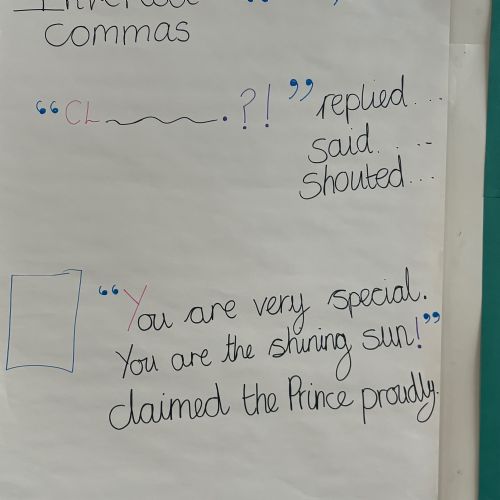 Inverted “ ”
commas
“CL ______.?!” replied...
said....
shouted...
“You are very special.
You are the shining sun!”
claimed the Prince proudly.